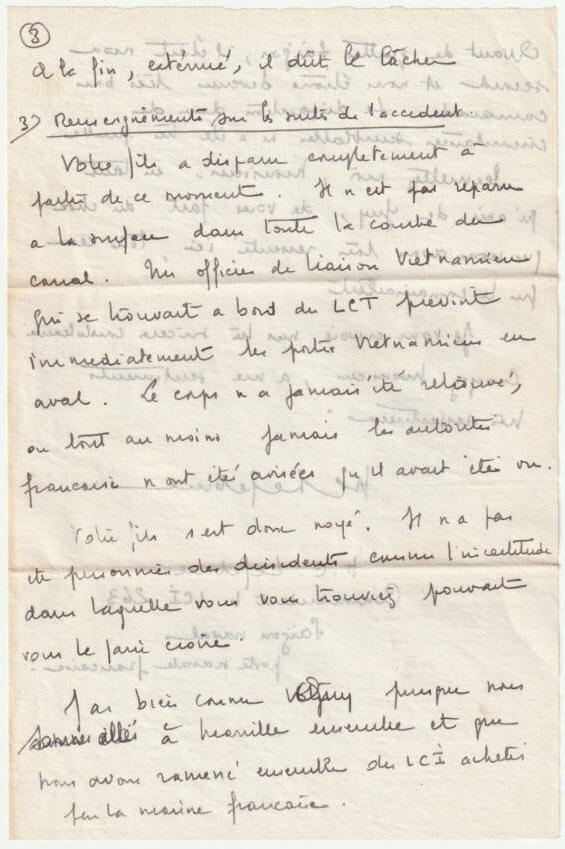 ③
A la fin, exténué, il dut le lâcher
3) Renseignements sur les suites de l'accident.
Votre fils a disparu complètement à
partir de ce moment. Il n'est pas reparu
a la surface dans toute la courbe du
canal. Un officier de liaison Vietnamien
qui se trouvait a bord du LCT prévint
immediatement les postes Vietnamiens en
aval. Le corps n'a jamais été retrouvé,
ou tout au moins jamais les autorités
française n'ont étés avisées qu'il avait étés vu.
Votre fils s'est donc noyé. Il n'a pas
été prisonnier des dissidents comme l'incertitude
dans laquelle vous vous trouviez pouvait
vous le faire croire.
J'ai bien connu puisque nous
sommes allés à Manille ensemble et que
nous avons ramené ensemble des LCI achetés
par la marine française.